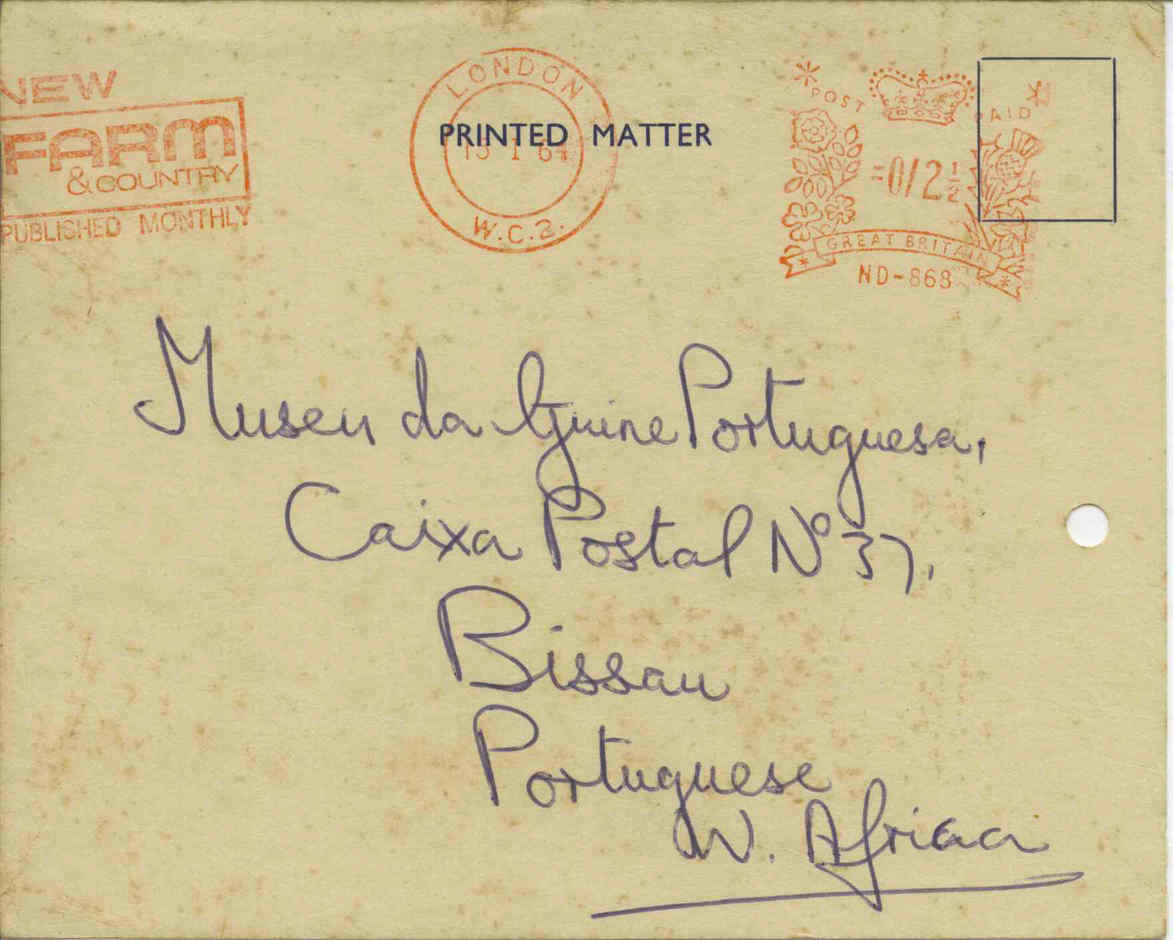 NEW
FARM
& COUNTRY
PUBLISHED MONTHLY
LONDON
W.C.2.
PRINTED MATTER
POST PAID
=0/2½
GREAT BRITAIN
ND-868
Museu da Guine Portuguesa,
Caixa Postal Nº 37,
Bissau
Portuguese
W. Africa